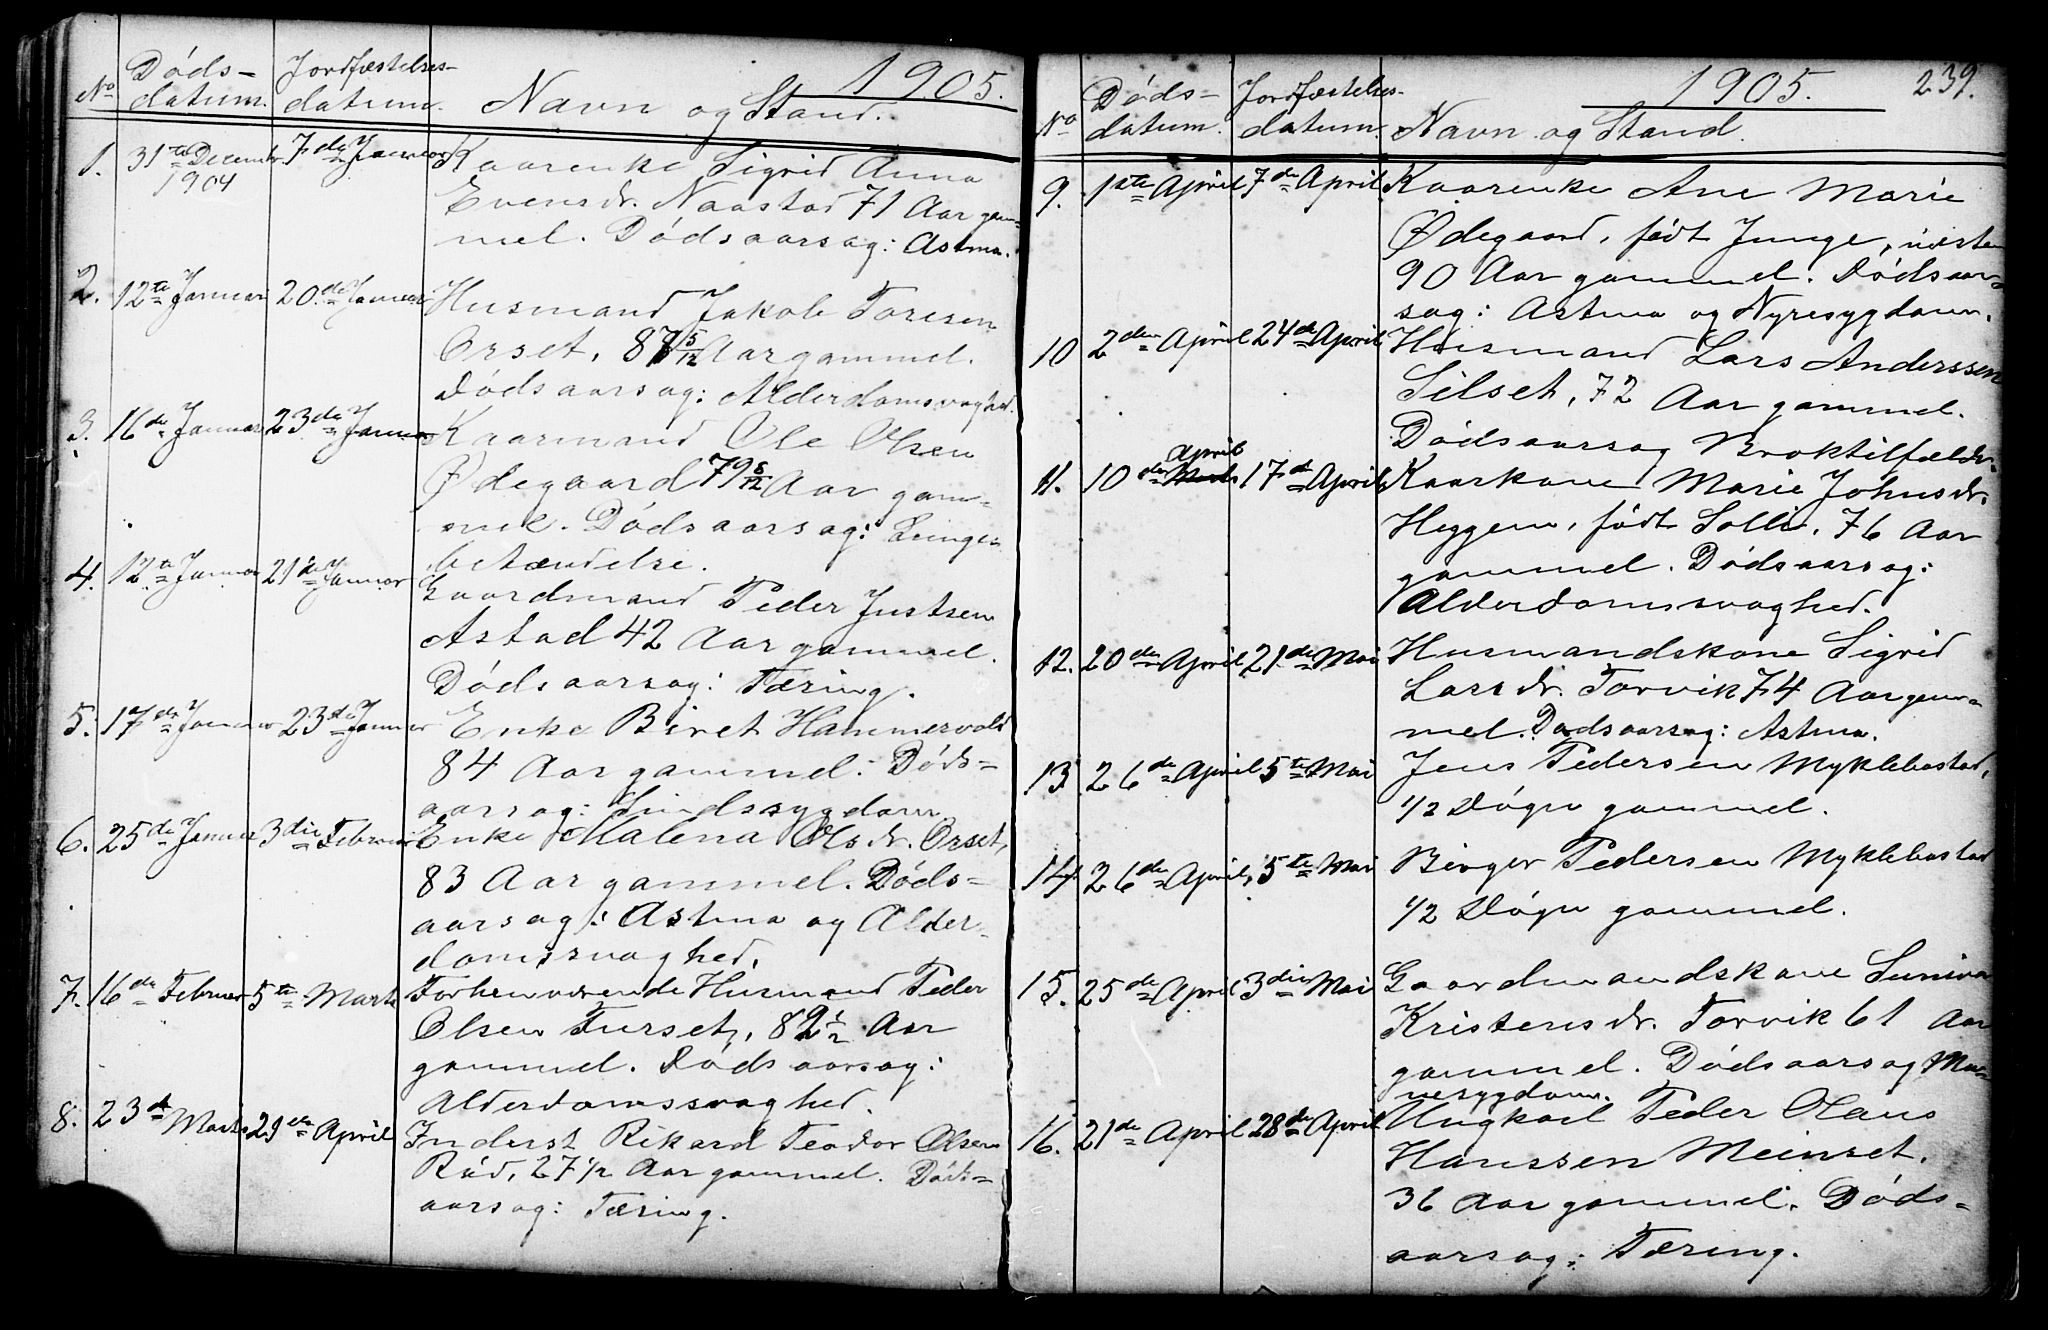 1905.
No Døds- Jordfæstelses-
datum. datum. Navn og Stand.
1. 31te December 7de Januar Kaarenke Sigrid Anna
1904
Evensdr. Naastad 71 Aar gam-
mel. Dødsaarsag: Astma.
2. 12te Januar 20de Januar Husmand Jakob Toresen
Orset, 87 5/12 Aar gammel.
Dødsaarsag: Alderdomsvaghed.
3. 16de Januar 23de Januar Kaarmand Ole Olsen
Ødegaard 79 8/12 Aar gam-
mel. Dødsaarsag: Lunge-
betændelse.
4. 12te Januar 21de Januar Gaardmand Peder Justsen
Astad 42 Aar gammel.
Dødsaarsag: Tæring.
5. 17de Januar 23de Januar Enke Biret Hammervold
84 Aar gammel. Døds-
aarsag: Sindssygdom.
6. 25de Januar 3die Februar Enke Malena Olsdr. Orset,
83 Aar gammel. Døds-
aarsag: Astma og Alder-
domssvaghed.
7. 16de Februar 5te Marts Forhenværende Husmand Peder
Olsen Furset, 82 1/2 Aar
gammel. Dødsaarsag:
Alderdomssvaghed.
8. 23de Marts 29de April Inderst Rikard Teodor Olsen
Rød, 27 1/2 Aar gammel. Døds-
aarsag: Tæring.
1905. 239.
No Døds- Jordfæstelses-
datum. datum. Navn og Stand.
9. 1ste April 7de April Kaarenke Ane Marie
Ødegaard, født Junge, næsten
90 Aar gammel. Dødsaar-
sag: Astma og Nyresygdom.
10 2den April 24de April Husmand Lars Anderssen
Silset, 72 Aar gammel.
Dødsaarsag Broktilfælde.
April
11. 10de Marts 17de April Kaarkone Marie Johnsdr.
Heggem, født Solli, 76 Aar
gammel. Dødsaarsag:
Alderdomssvaghed.
12. 20de April 21de Mai Husmandskone Sigrid
Larsdr. Torvik 74 Aar gam-
mel. Dødsaarsag: Astma.
13 26de April 5te Mai Jens Pedersen Myklebostad,
1/2 Døgn gammel.
14 26de April, 5te Mai Birger Pedersen Myklebostad
1/2 Døgn gammel.
15. 25de April 3die Mai Gaardmandskone Suniva
Kristensdr. Torvik 61 Aar
gammel. Dødsaarsag Ma-
vesygdom.
16. 21de April 28de April Ungkarl Peder Olaus
Hanssen Meinset.
36 Aar gammel. Døds-
aarsag: Tæring.